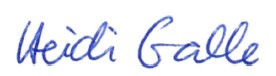 Heidi Galle